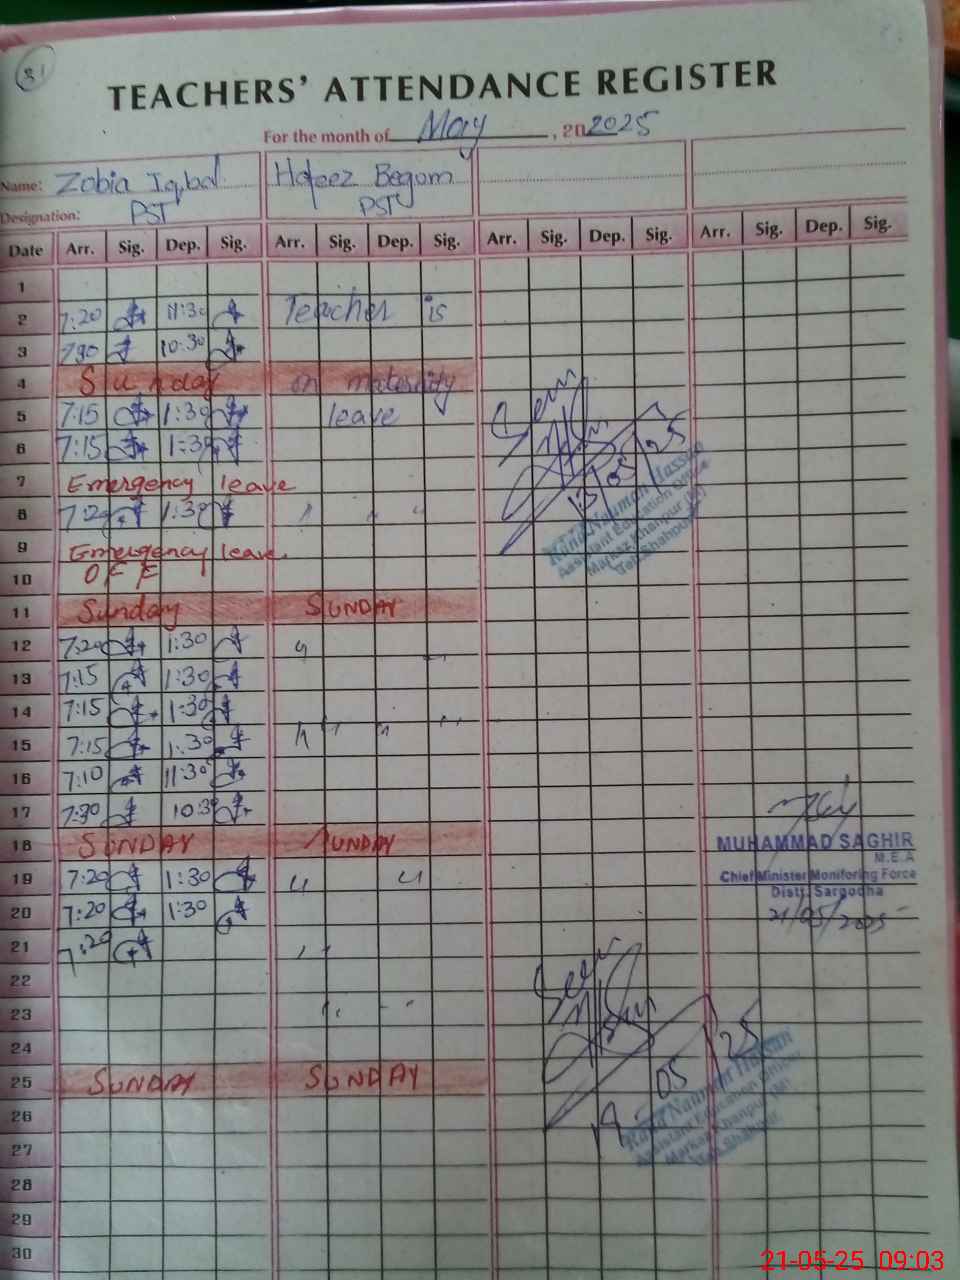 31
TEACHERS' ATTENDANCE REGISTER
For the month of May, 20 2025
Name: Zobia Iqbal Hafeez Begum
Designation: PST PST
Date Arr. Sig. Dep. Sig. Arr. Sig. Dep. Sig. Arr. Sig. Dep. Sig. Arr. Sig. Dep. Sig.
1
2 7:20 11:30 Teacher is
3 7:30 10:30
4 Sunday on maternity
5 7:15 1:30 leave
6 7:15 1:30
7 Emergency leave
8 7:20 1:30 " " "
9 Emergency leave
10 OFF
11 Sunday SUNDAY
12 7:20 1:30 "
13 7:15 1:30
14 7:15 1:30
15 7:15 1:30 " " " "
16 7:10 11:30
17 7:30 10:30
18 SUNDAY SUNDAY
19 7:20 1:30 " "
20 7:20 1:30
21 7:20 "
22
23 " "
24
25 SUNDAY SUNDAY
26
27
28
29
30
Seen
13/05/25
Rana Nauman Hassan
Assistant Education Officer
Markaz Khanpur (M)
Teh. Shahpur
MUHAMMAD SAGHIR
M.E.A
Chief Minister Monitoring Force
Distt. Sargodha
21/05/2025
Seen
19-05-25
Rana Nauman Hassan
Assistant Education Officer
Markaz Khanpur (M)
Teh. Shahpur
21-05-25 09:03